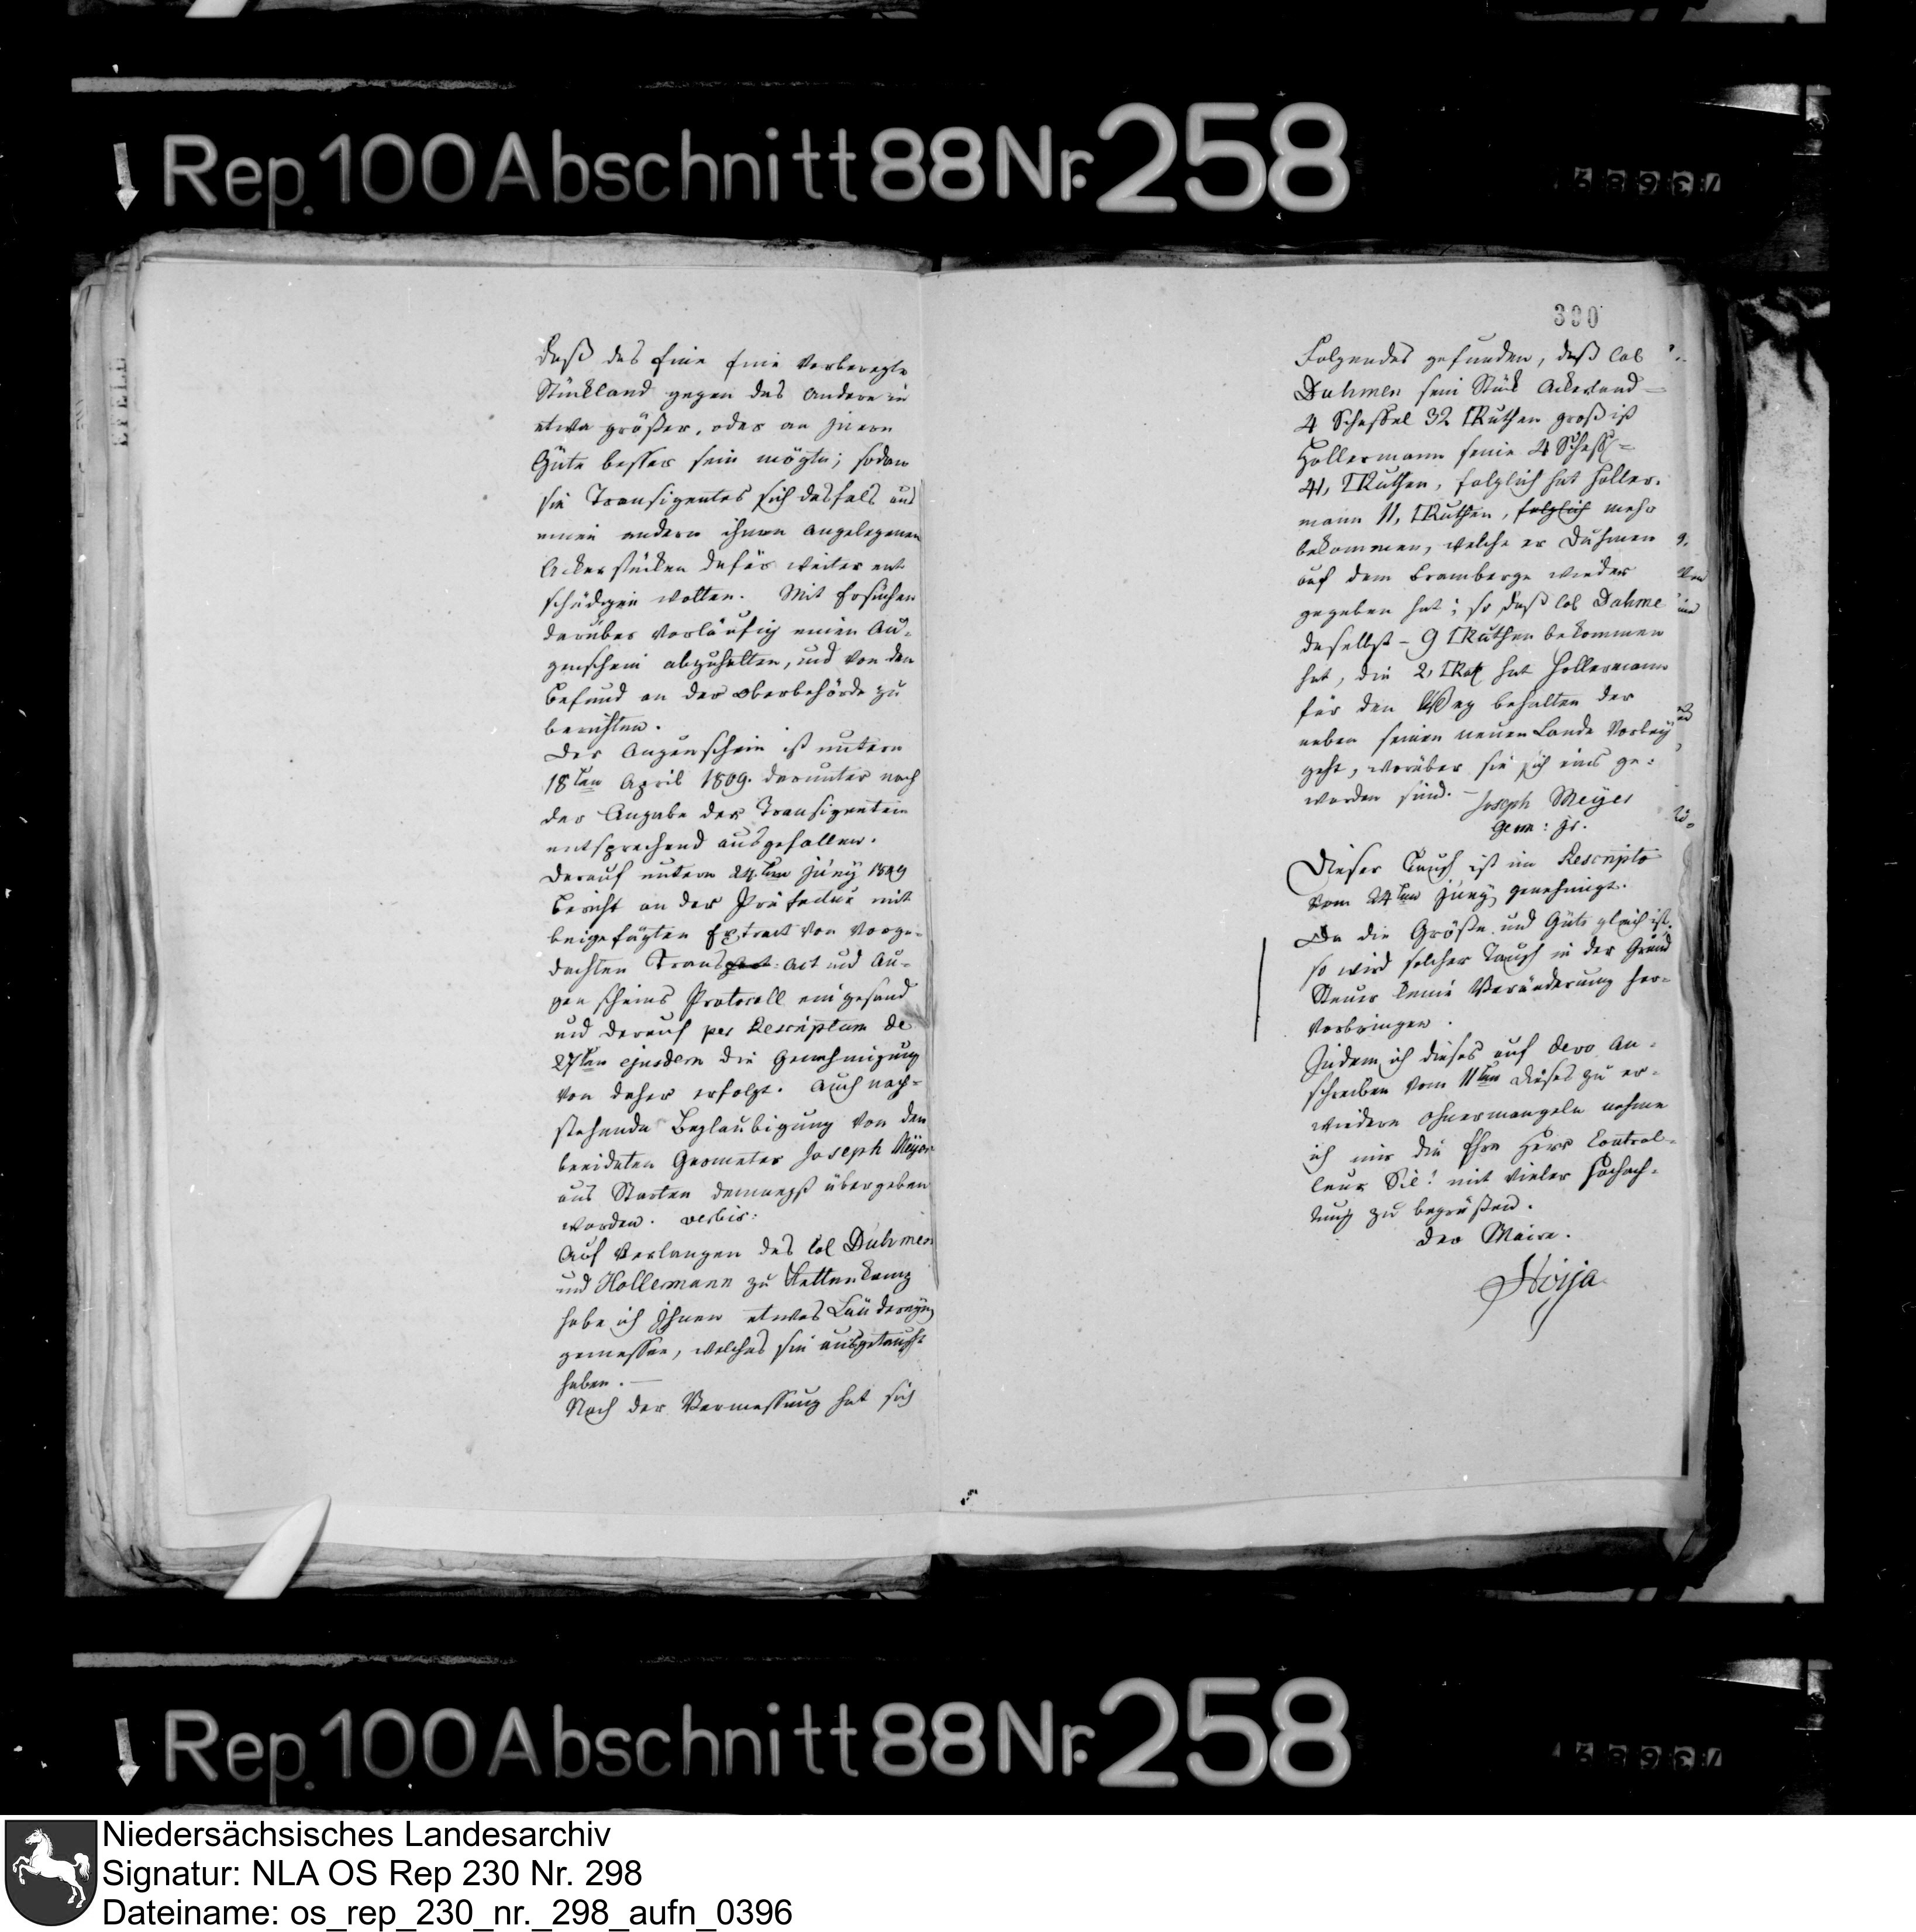 Rep. 100 Abschnitt 88 Nr. 258
daß das eine hin vorberegte
Stückland gegen das andere in
etwa größer, oder an innern
Güte besser sein mögte; sodan
sie Transigentes sich desfals aus
einen andern ihnen angelegenen
Ackerstücken dafür weiter ent
schädigen wolten. Mit Ersuchen
darüber vorläufig einen Au-
genschein abzuhalten, und von den
Befund an der Oberbehörde zu
berichten.
Der Augenschein ist unterm
18ten April 1809. darunter nach
der Angabe der Transigenten
entsprechend ausgefallen.
Darauf unterm 24ten Juny 1809
Bericht an der Präfectur mit
beigefügten Extract von vorge-
dachten Trans Act und Au-
genscheins Protocoll eingesand
und darauf per Rescriptum de
27ten ejusdem die Genehmigung
von daher erfolgt. Auch nach-
stehende Beglaubigung von den
beeideten Geometer Joseph Meyer
aus demnegst übergeben
worden. verbis:
Auf Verlangen des Col Duhmen
und Hollermann zu Kettenkamp
habe ich Ihnen etwas Ländereyen
gemessen, welches sie ausgetauscht
haben. —
Nach der Vermessung hat sich
300
Folgendes gefunden, daß Col
Duhmen sein Stück Ackerland
4 Scheffel 32 Ruthen groß ist
Hollermann seine 4 Scheff=
41, Ruthen, folglich hat Holler-
mann 11, Ruthen, folglich mehr
bekommen, welche er Duhmen
auf dem Bramberge wieder
gegeben hat; so, daß Col Duhme
daselbst – 9 Ruthen bekommen
hat, die 2, Rut hat Hollermann
für den Weg behalten der
neben seinen neuen Lande vorbey
geht, worüber sie sich eins ge-
worden sind. – Joseph Meyer
Geom: jr.
Dieser Tausch ist im Rescripto
vom 24ten Juny genehmigt.
Da die Größe und Güte gleich ist,
so wird solcher Tausch in der Grund
Steuer keine Veränderung her-
vorbringen.
Indem ich dieses auf dero An-
schreiben vom 11ten dieses zu er-
wiedern ohnermangele nehme
ich mir die Ehre Herr Control-
leur Sie! mit vieler Hochach-
tung zu begrüßen.
der Maire.
Rep. 100 Abschnitt 88 Nr. 258
Niedersächsisches Landesarchiv
Signatur: NLA OS Rep 230 Nr. 298
Dateiname: os_rep_230_nr._298_aufn_0396